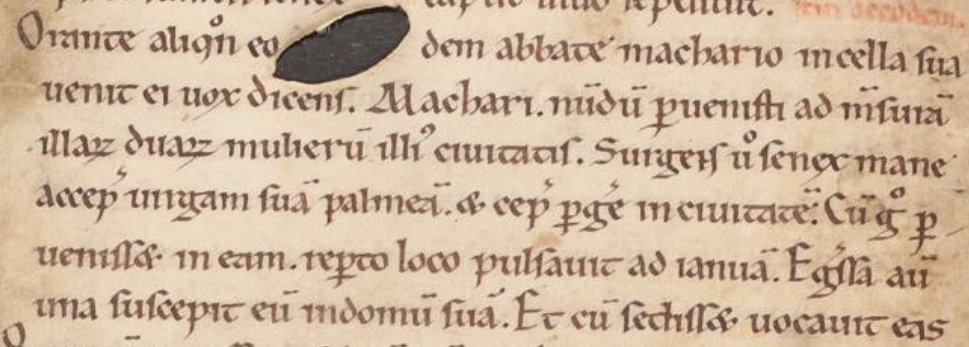 sepeliuit.
Orante aliqn̄ eo dem abbate machario in cella sua
uenit ei uox dicens. Machari. nūdū ꝑuenisti ad m̄surā
illaꝝ duaꝝ mulierū illiꝰ ciuitatis. Surgens ůo senex mane
accep̓ uirgam suā palmeā. & cep̓ ꝑg̓e in ciuitatē. Cū gͦ ꝑ
uenisset in eam. reꝑto loco pulsauit ad ianuā. Eg̓ssa aū
una suscepit eū in domū suā. Et cū sedisset uocauit eas